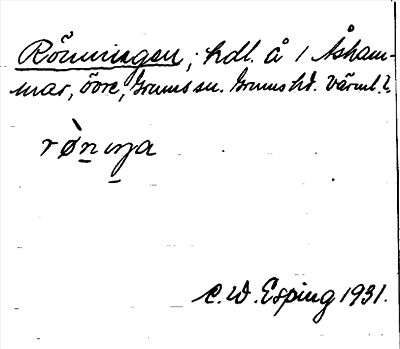 Rönningen, hdl. å 1 Åsham-
mar, övre, Grums sn. Grums hd. Värml. l.
rø̀n ıŋa
C. W. Esping 1931.